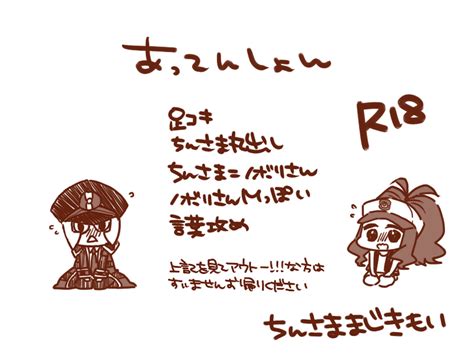 あってんしょん
R18
足コキ
ちんさま丸出し
ちんさま=ノボリさん
ノボリさんMっぽい
言葉攻め
上記を見てアウトー!!!な方は
すいませんお帰りください
ちんさままじきもい